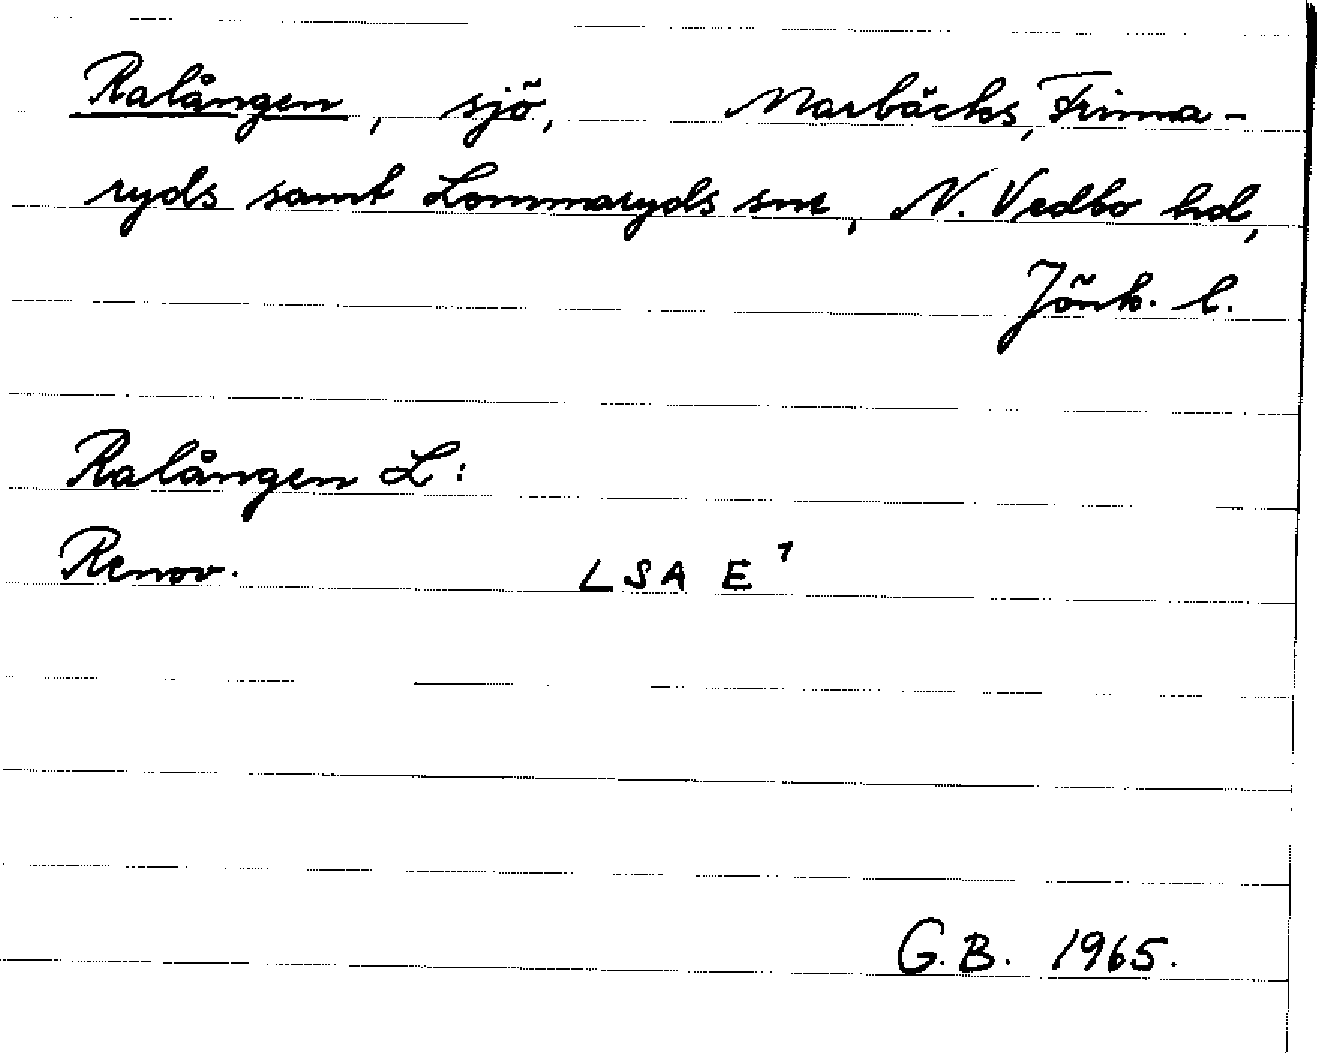 Ralången, sjö, Marbäcks, Frinna-
ryds samt Lommaryds snr, N. Vedbo hd,
Jönk. l.
Ralången L:
Renov. LSA E¹
G.B. 1965.